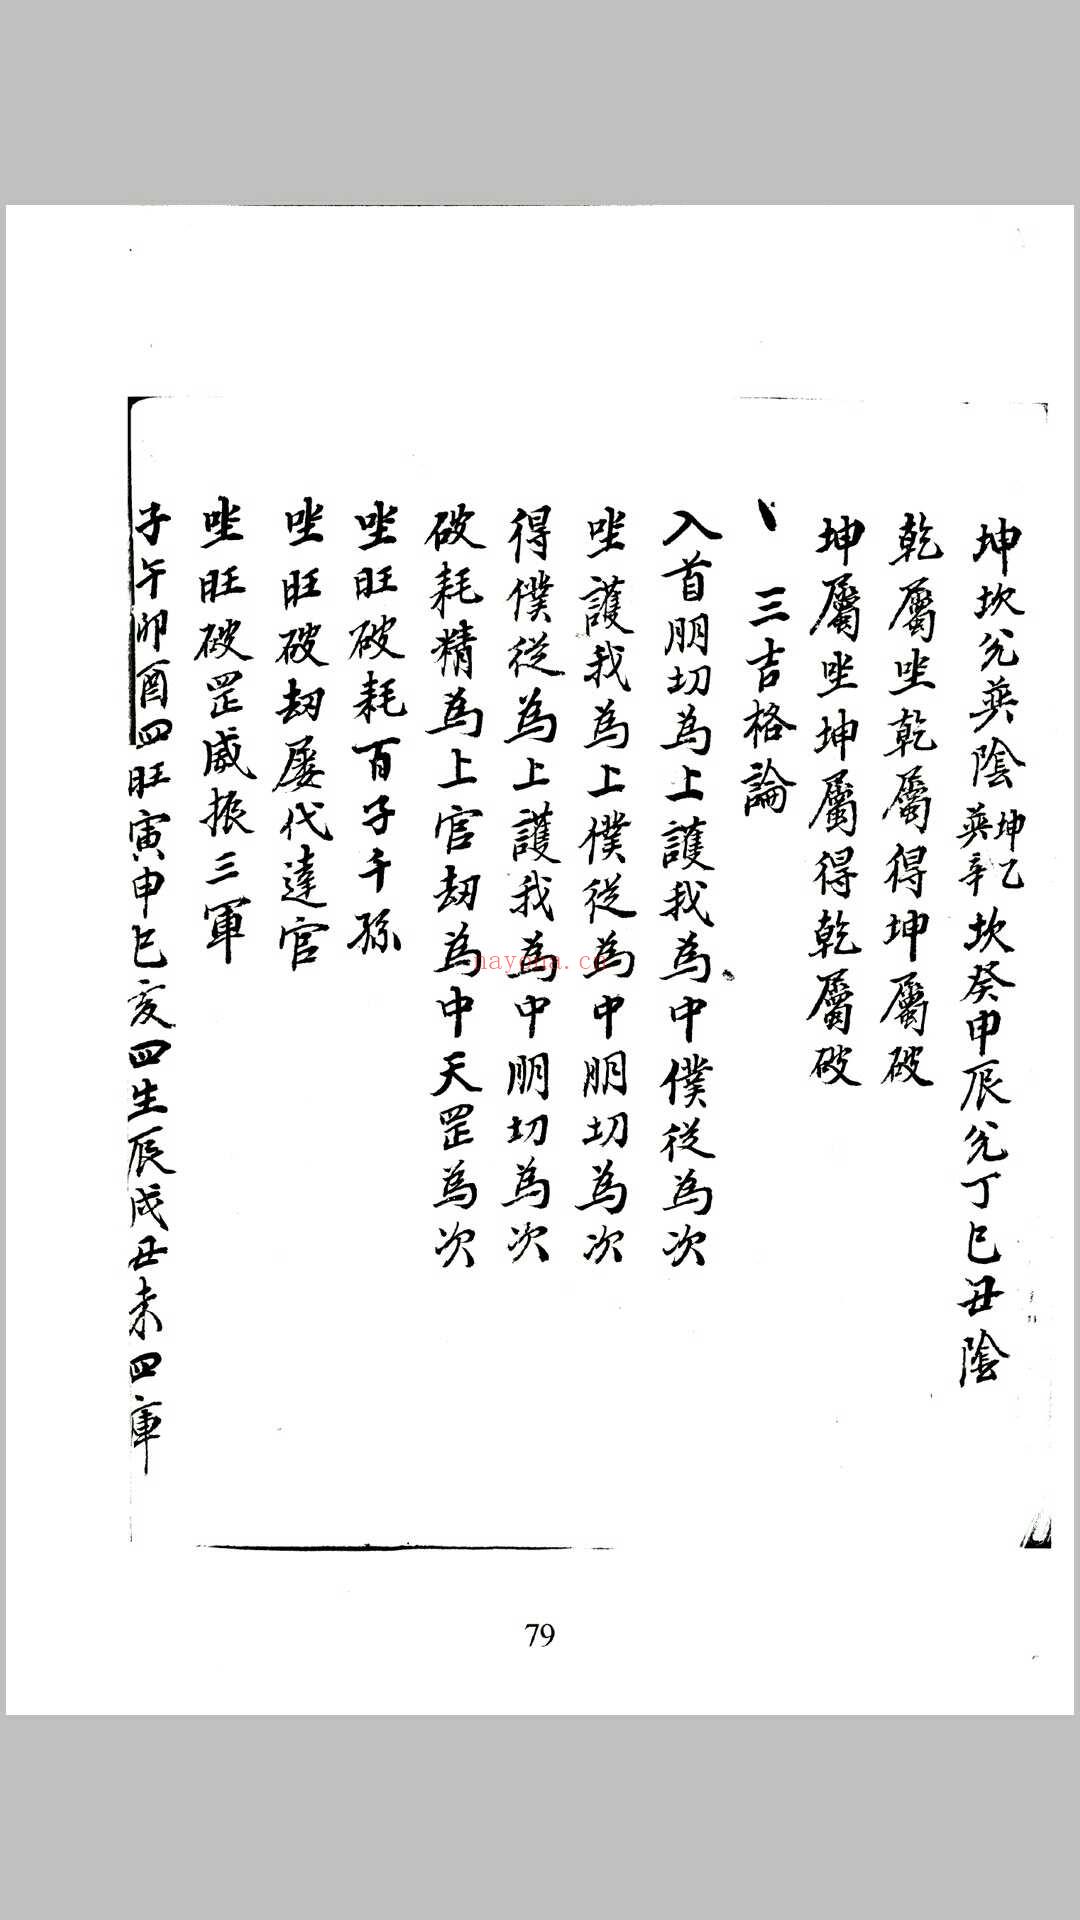 坤坎兊巽陰坤乙巽辛坎癸申辰兊丁巳丑陰
乾屬坐乾屬得坤屬破
坤屬坐坤屬得乾屬破
、三吉格論
入首朋切為上護我為中僕從為次
坐護我為上僕從為中朋切為次
得僕從為上護我為中朋切為次
破耗精為上官刼為中天罡為次
坐旺破耗百子千孫
坐旺破刼屢代達官
坐旺破罡威振三軍
子午卯酉四旺寅申巳亥四生辰戌丑未四庫
nayona.cn
79